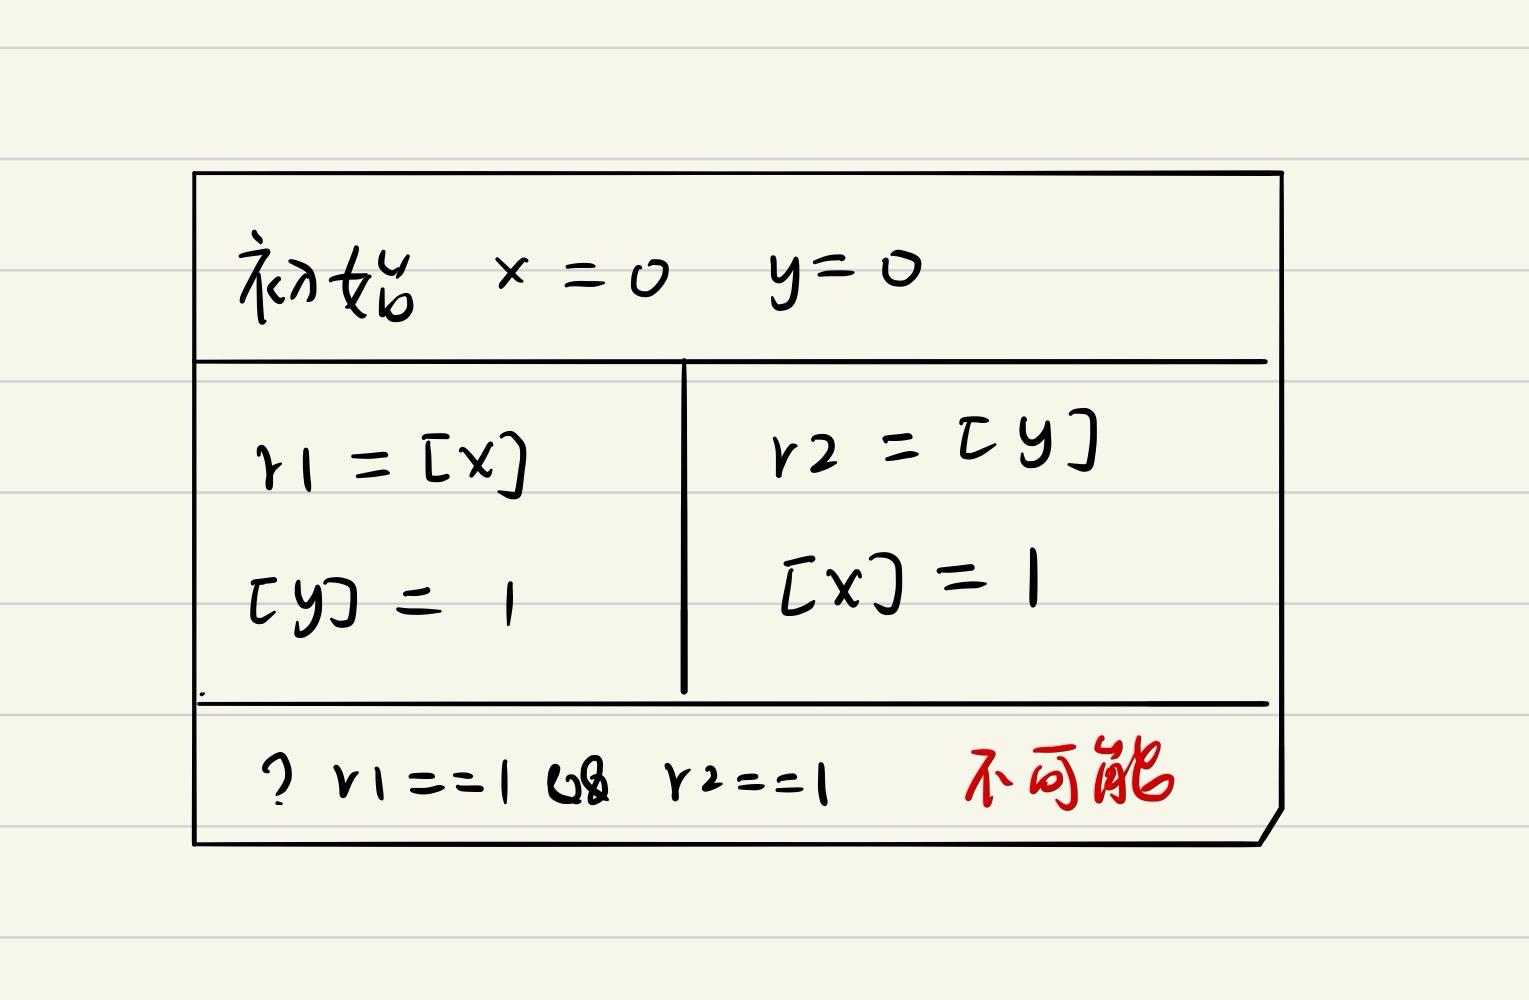 初始 x = 0 y = 0
r1 = [x] r2 = [y]
[y] = 1 [x] = 1
? r1 == 1 && r2 == 1 不可能